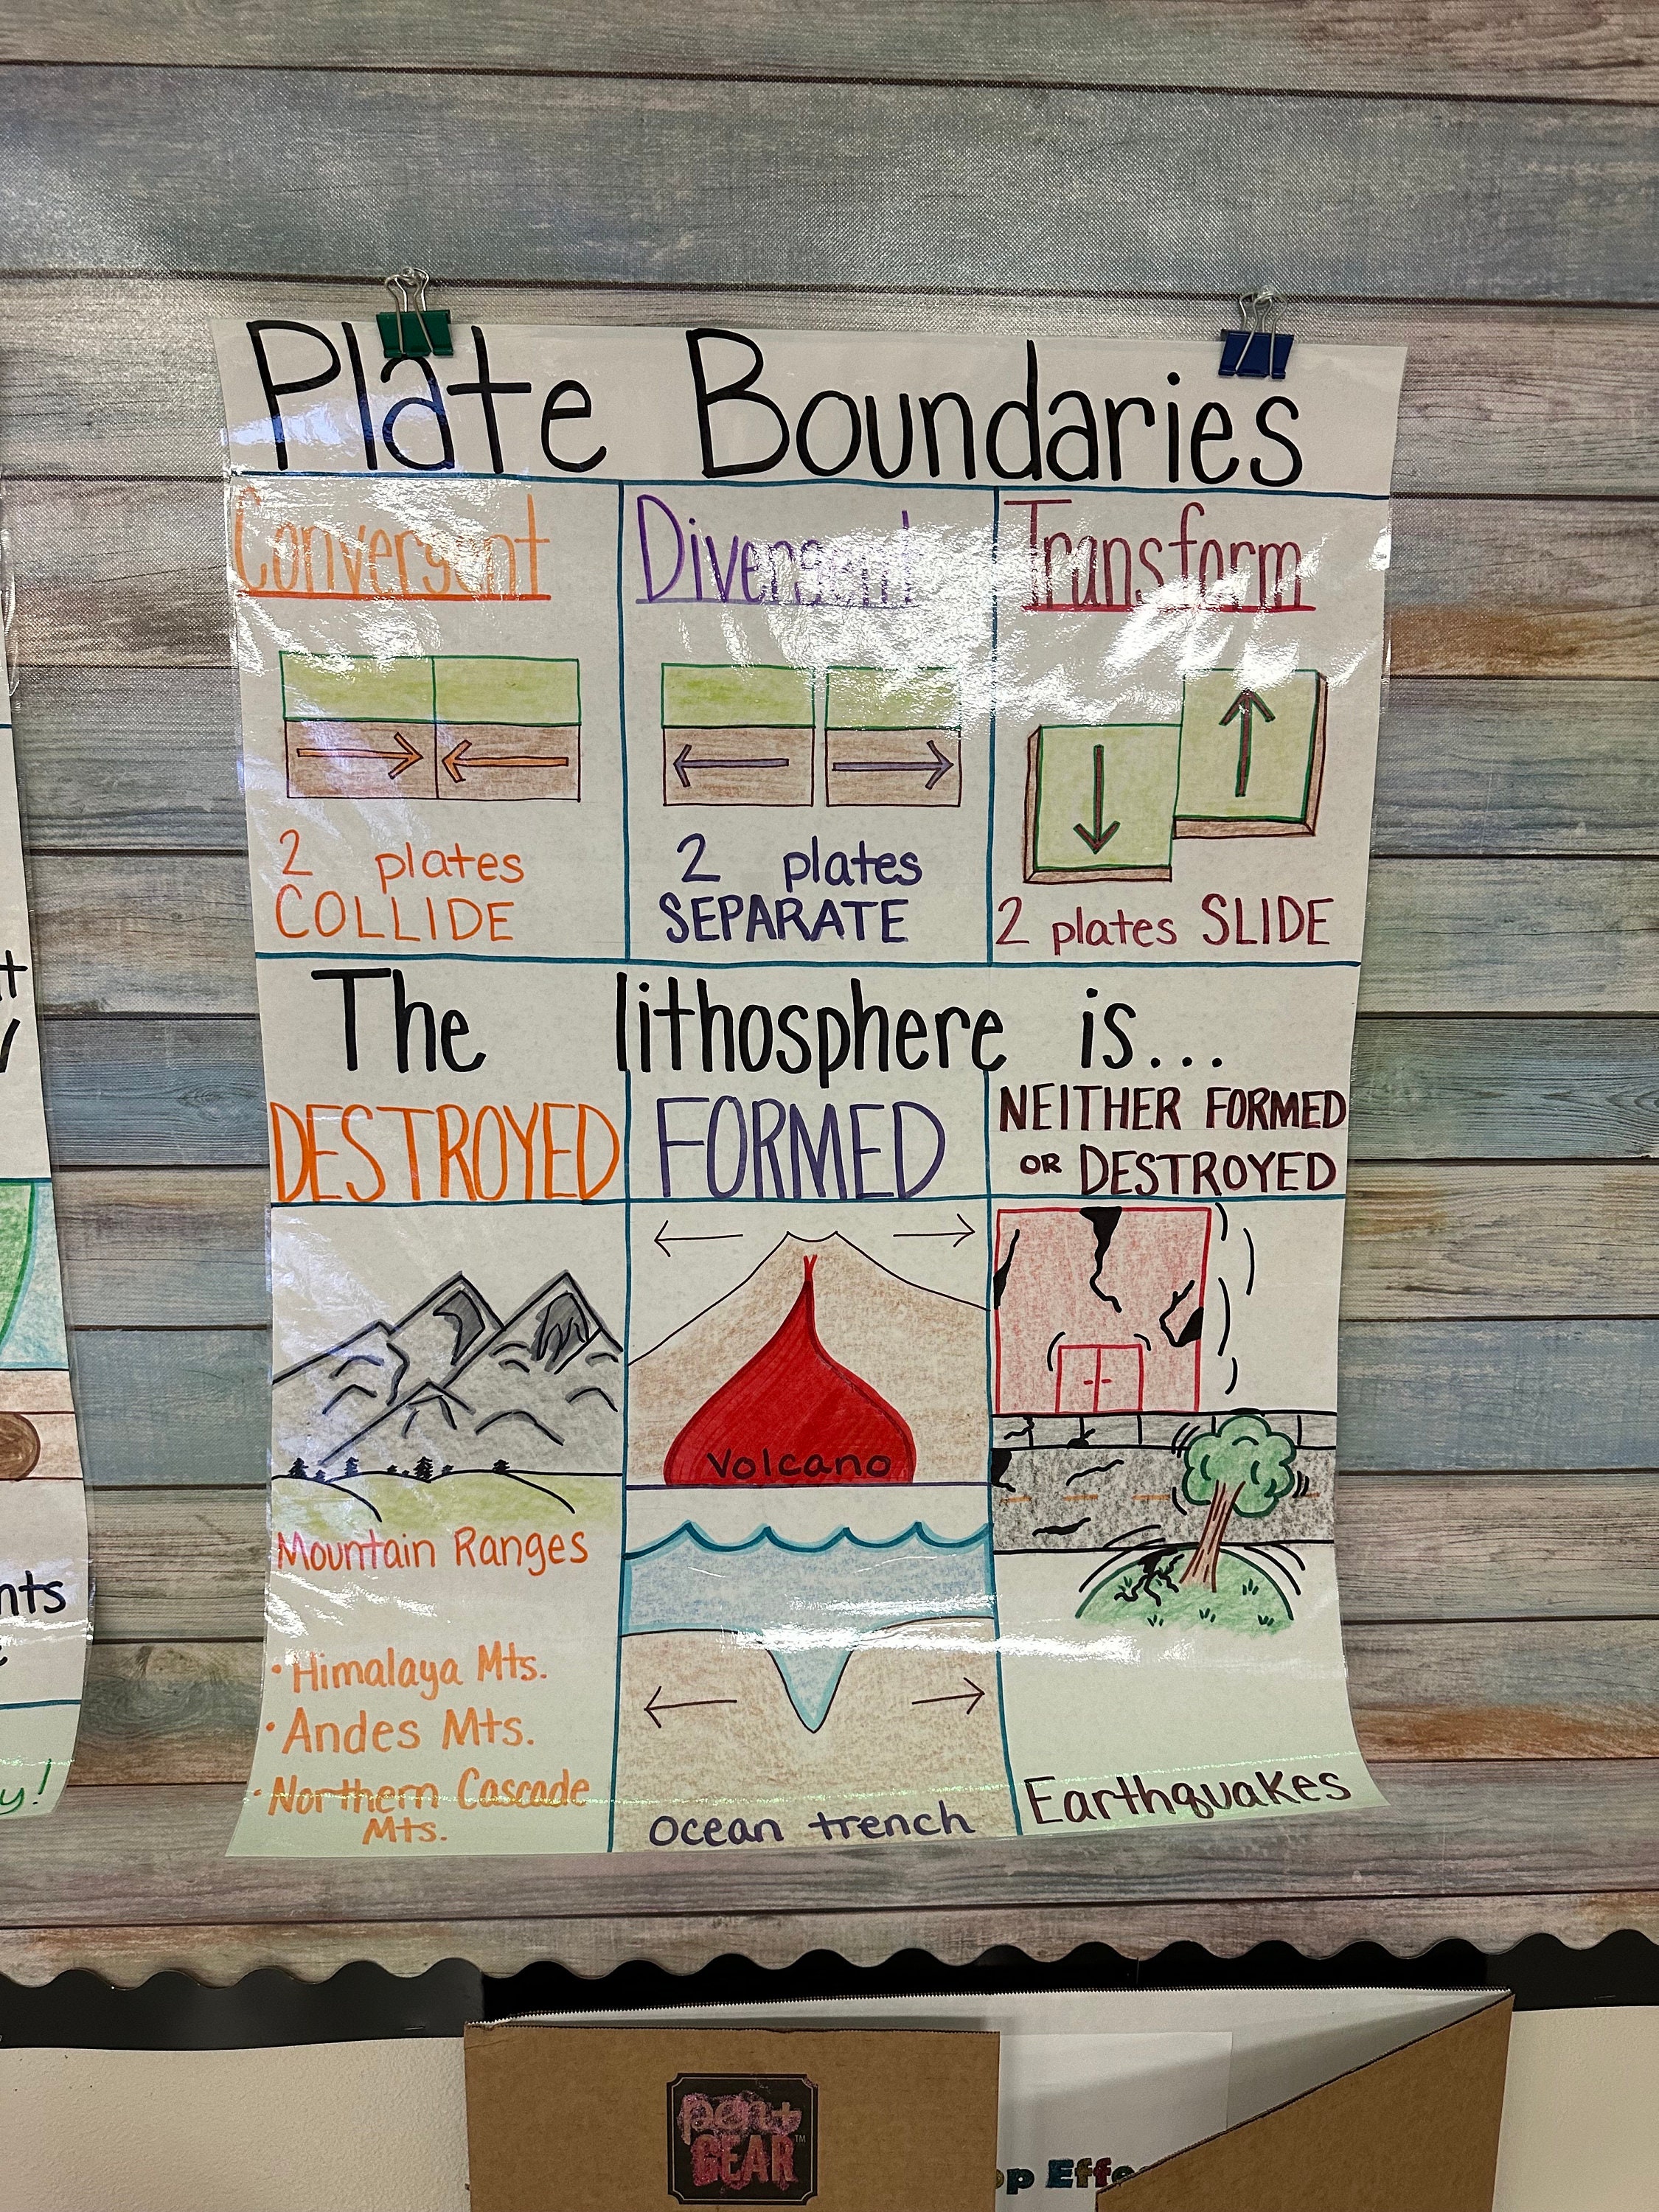 Plate Boundaries
Convergent
Divergent
Transform
2 plates
COLLIDE
2 plates
SEPARATE
2 plates SLIDE
The lithosphere is...
DESTROYED
FORMED
NEITHER FORMED
OR DESTROYED
Mountain Ranges
• Himalaya Mts.
• Andes Mts.
• Northern Cascade
Mts.
Volcano
Ocean trench
Earthquakes
nts
y!
pen+
GEAR™
op Effe